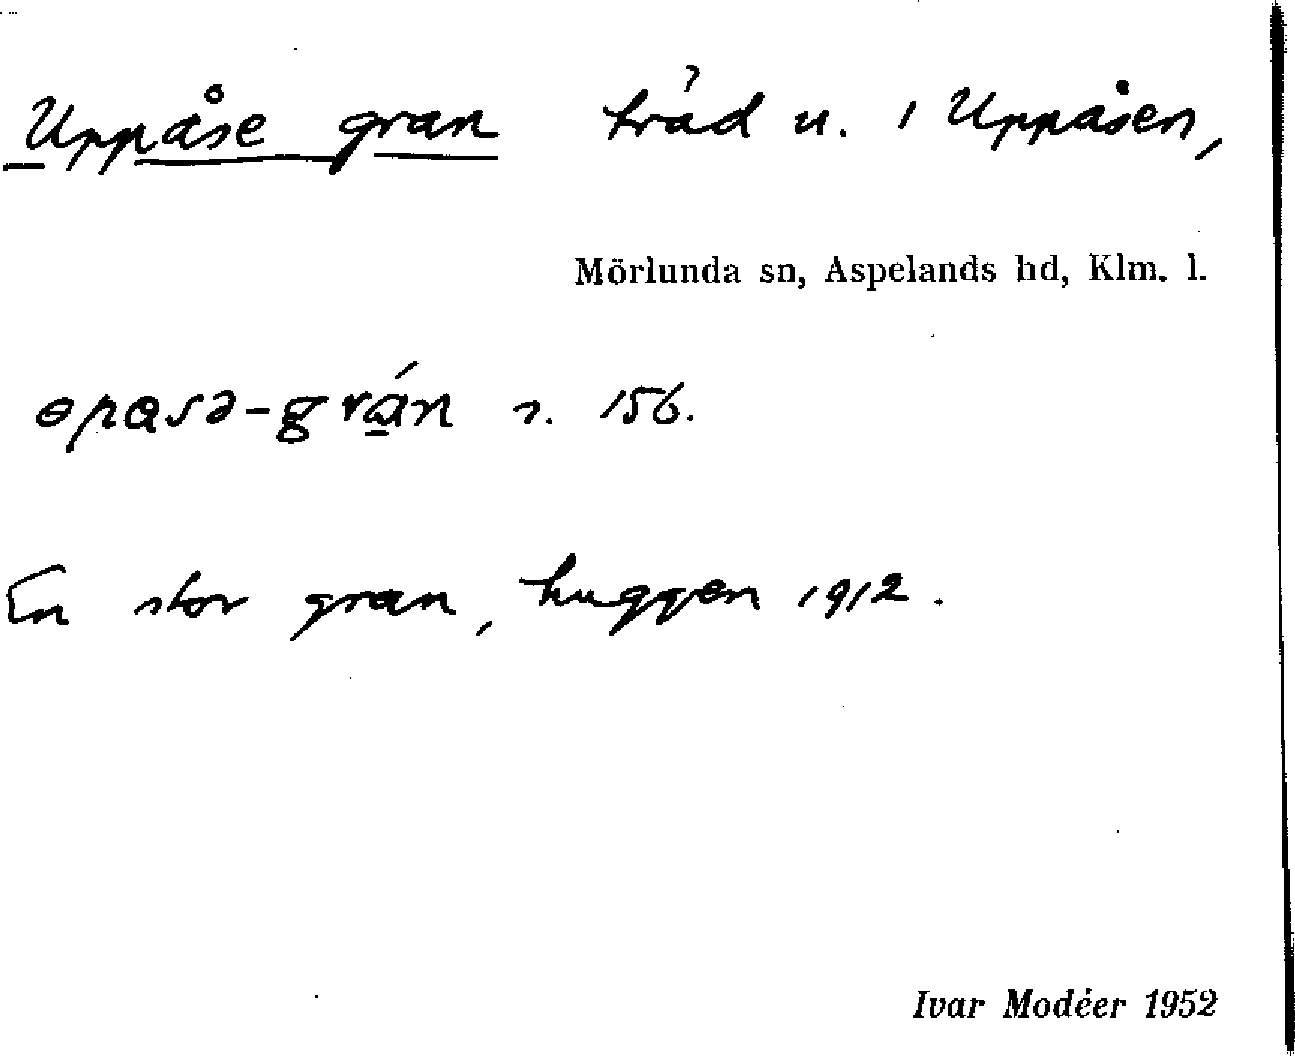 Uppåse gran träd u. i Uppåsen,
Mörlunda sn, Aspelands hd, Klm. l.
ɵpasə-grán s. 156.
En stor gran, huggen 1912.
Ivar Modéer 1952